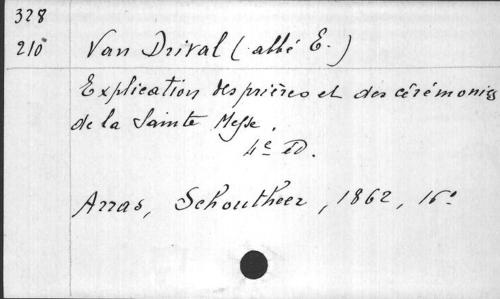 328
210 Van Drival (abbé E.)
Explication des prières et des cérémonies
de la Sainte Messe.
4e éd.
Arras, Schoutheer, 1862, 16°